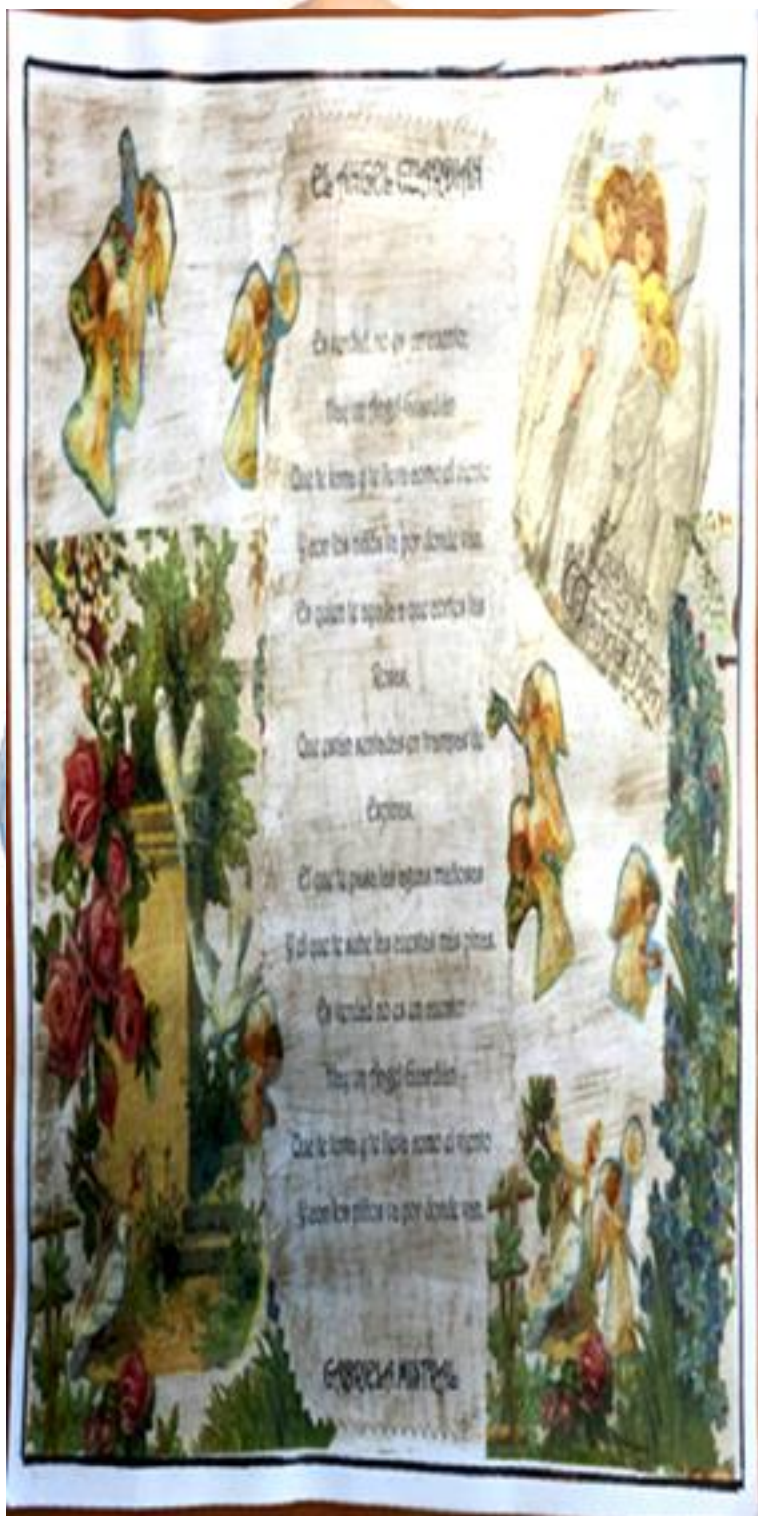 EL ANGEL GUARDIAN
Es verdad, no es un cuento;
Hay un Angel Guardián
Que te toma y te lleva como el viento
Y con los niños va por donde van.
Es quien te ayuda a que cortes las
Rosas,
Que están sentadas en trampas de
Espinas,
El que te pasa las aguas mañosas
Y el que te sube las cuestas más pinas.
Es verdad no es un cuento
Hay un Angel Guardián
Que te toma y te lleva como el viento
Y con los niños va por donde van.
GABRIELA MISTRAL